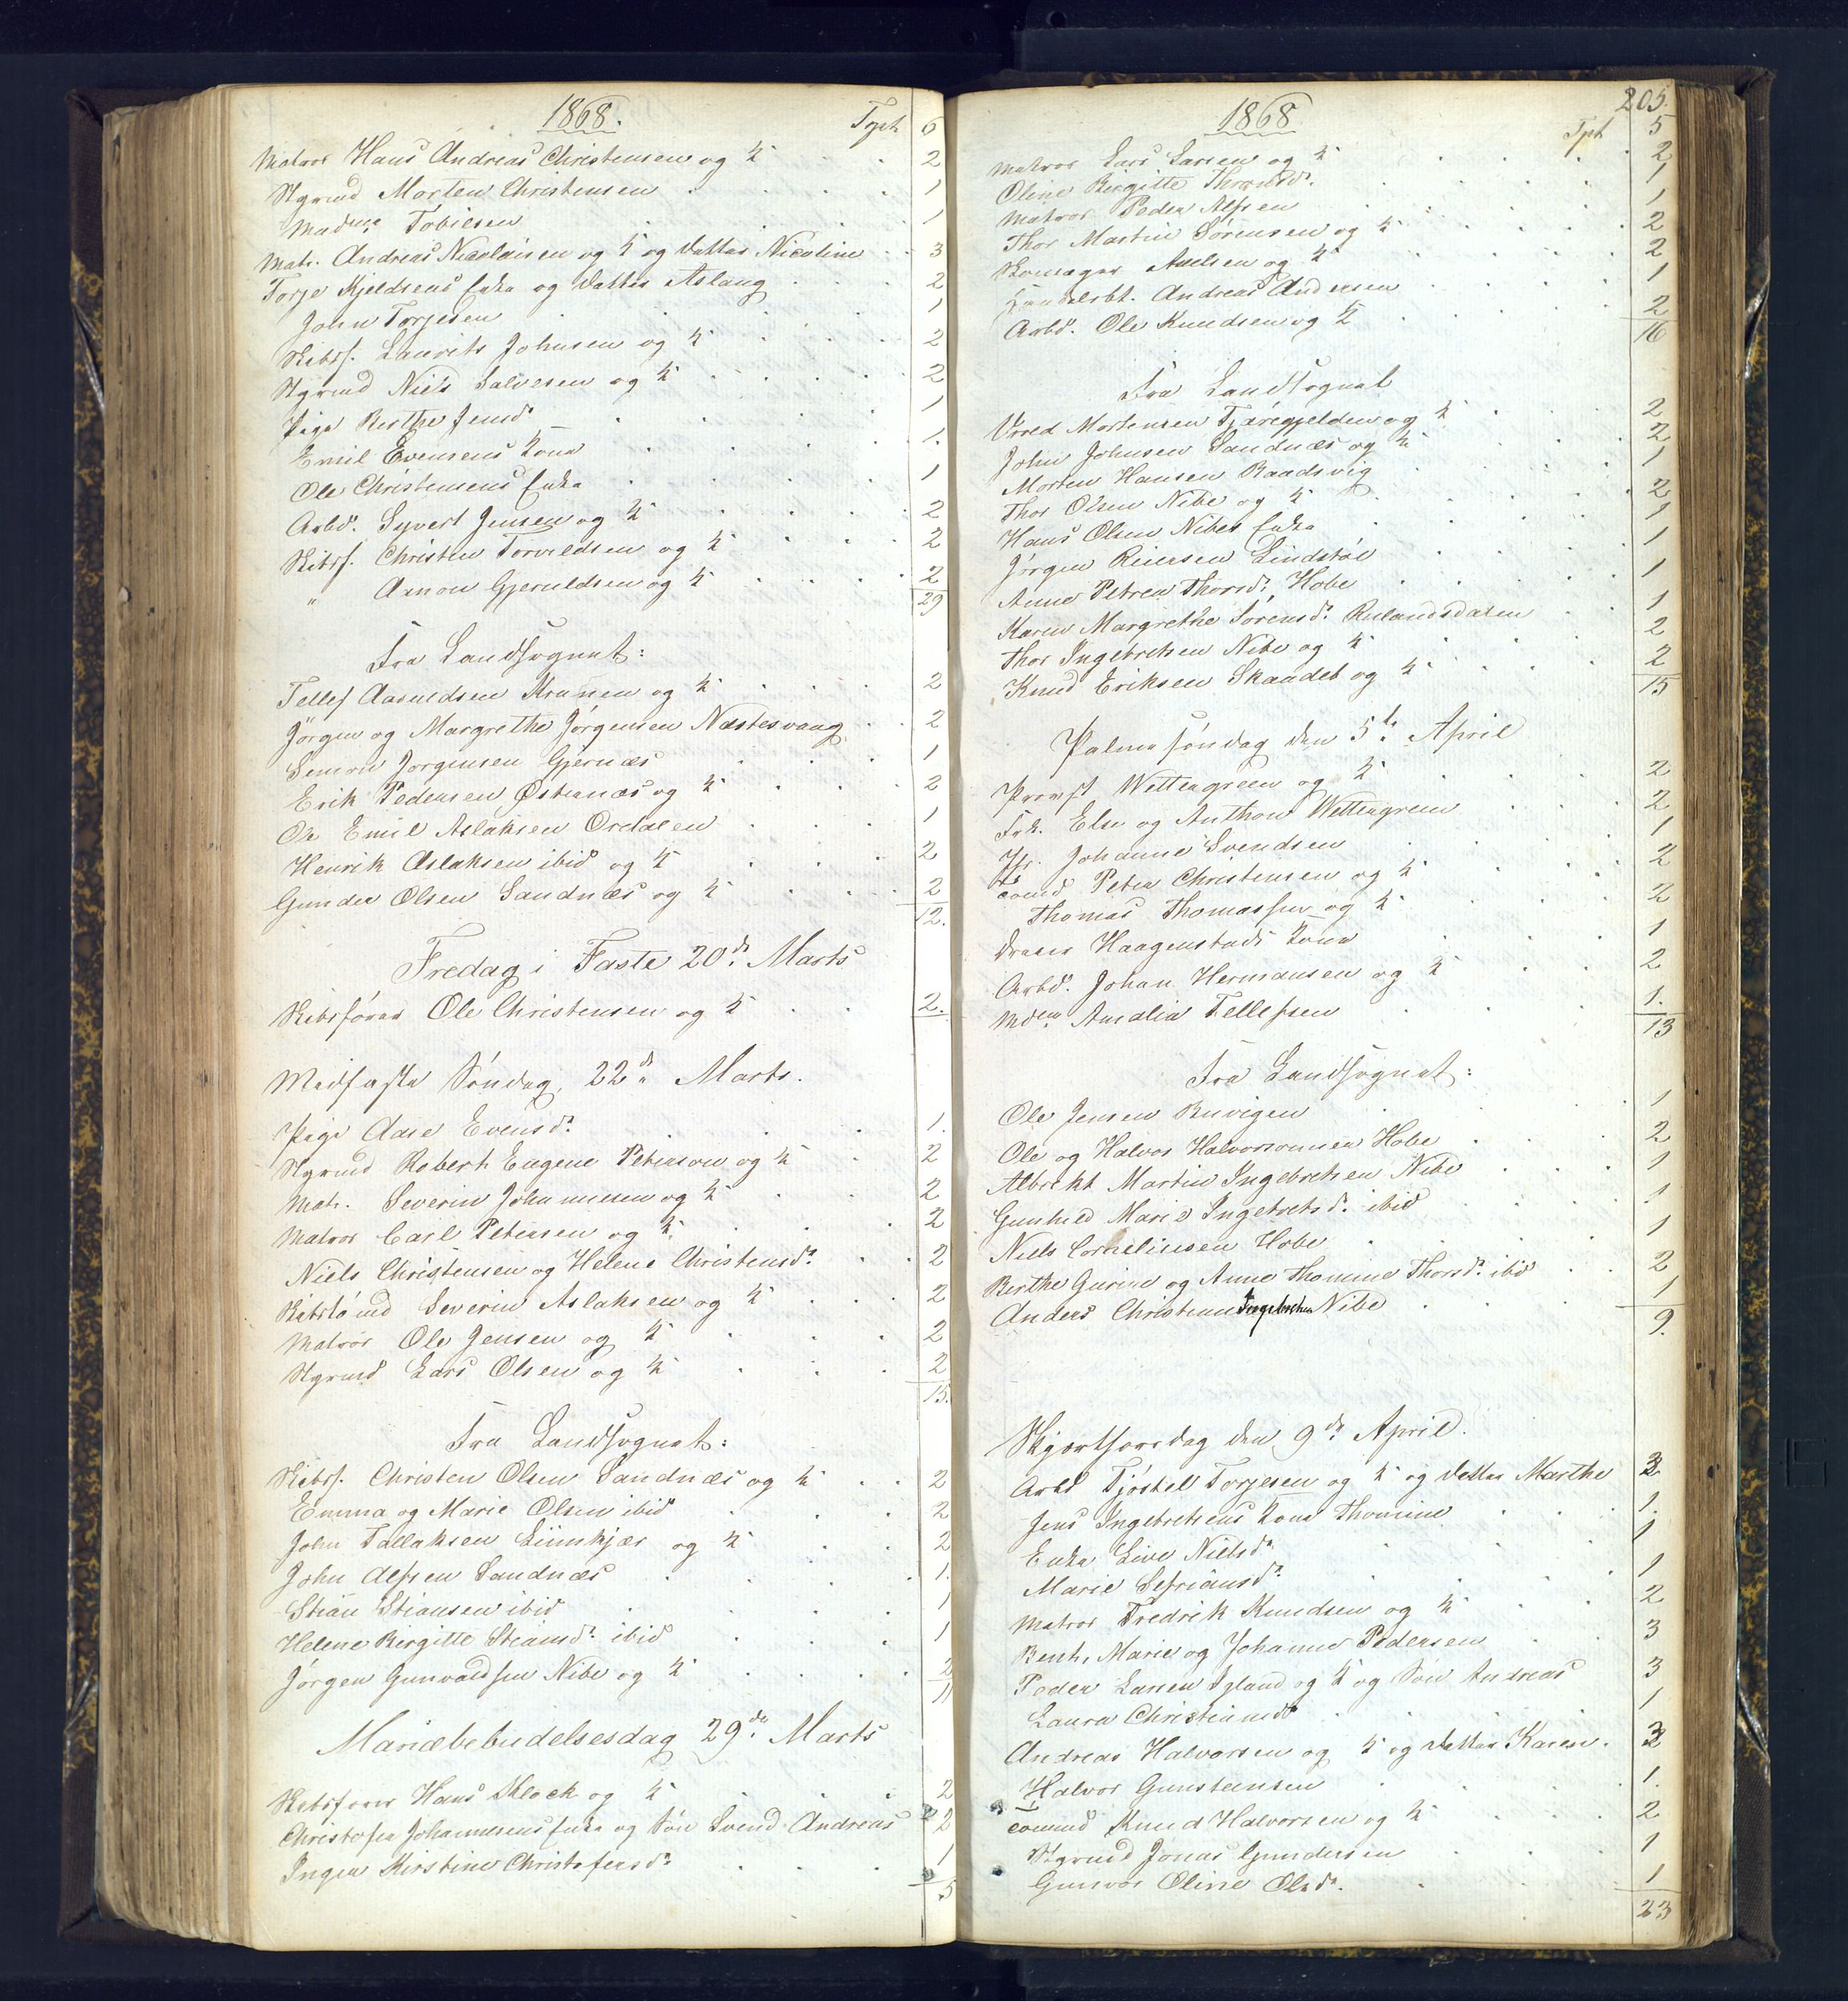 1868.
Tpt 6
Matros Hans Andreas Christensen og K 2
Styrmd Morten Christensen 1
Madme Tobiesen 1
Matr. Andreas Nicolaisen og K og Datter Nicoline 3
Torje Kjeldsens Enke og Datter Aslaug 2
John Torjesen 1
Skibsf. Laurits Johnsen og K 2
Styrmd Niels Salvesen og K 2
Pige Berthe Jensdr 1
Emil Evensens Kone 1.
Ole Christensens Enke 1
Arbd. Syvert Jensen og K 2
Skibsf. Christen Torvildsen og K 2
" Amon Gjeruldsen og K 2
29
Fra Landsognet:
Tellef Aanuldsen og K 2
Jörgen og Margrethe Jörgensen Næstesvaag 2
Simon Jorgensen Gjernæs 1
Erik Pedersen Østernæs og K 2
Ole Emil Aslaksen Ordalen 1
Henrik Aslaksen ibid og K 2
Gunder Olsen Sandnæs og K 2
12.
Fredag i Faste 20de Marts
Skibsförer Ole Christensen og K 2.
Midfaste Söndag, 22de Marts.
Pige Aase Evensdr 1.
Styrmd Robert Eugene Peterson og K 2
Matr. Severin Johannesen og K 2
Matros Carl Petersen og K. 2
Niels Christensen og Helene Christensdr 2
Skibstömd Severin Aslaksen og K 2
Matros Ole Jensen og K 2
Styrmd Lars Olsen og K 2
15.
Fra Landsognet:
Skibsf. Christen Olsen Sandnæs og K 2
Emma og Marie Olsen ibid 2
John Tallaksen og K 2
John Alfsen Sandnæs 1.
Stian Stiansen ibid 1
Helene Birgitte Stiansdr ibid 1
Jörgen Gunvaldsen Nibe og K 2
11
Mariæbebudelsesdag 29de Marts
Skibsförer Hans Kloch og K 2
Christofer Johannesens Enke og Sön Svend Andreas 2
Inger Kirstine Christofersdr 1
5
1868
205.
Tpt 5
Matros Lars Larsen og K 2
Oline Birgitte Thorsdr. 1
Matros Peder Alfsen 1
Thor Martin Sörensen og K 2
Skomager Axelsen og K 2
Handelsbt. Andreas Andersen 1
Arbd. Ole Knudsen og K 2
16
Fra Landsognet
Vrold Mortensen Tjæregjelden og K 2
John Johnsen Sandnæs og K 2
Morten Hansen Raadsvig 1
Thor Olsen Nibe og K 2
Hans Olsen Nibes Enke 1
Jörgen Reiersen Lindstöl 1
Anne Petrea Thorsdr, Hobe 1
Karen Margrethe Sörensdr. 1
Thor Ingebretsen Nibe og K 2
Knud Eriksen Skaadet og K 2
15
Palmesöndag den 5te April
Provst Wettergreen og K 2
Frk. Else og Anthon Wettergreen 2
Jfr. Johanne Svendsen 1
Peter Christensen og K 2
Thomas Thomassen og K 2
Haagenstads Kone 1
Arbd. Johan Hermansen og K 2
Mdme Amalie Tellefsen 1.
13
Fra Landsognet:
Ole Jensen Buvigen 1
Ole og Halvor Halvorsen Hobe 2
Albrekt Martin Ingebretsen Nibe 1
Gunhild Marie Ingebretsdr. ibid 1
Niels Corneliusen Hobe 1
Berthe Gurine og Anne Thomine Thorsdr. ibid 2
Anders Christian Ingebretsen Nibe 1
9.
Skjærthorsdag den 9de April.
Arbd Tjöstel Torjesen og K og Datter Marthe 3
Jens Ingebretsens Kone Thomine 1.
Enke Live Nielsdr 1
Marie Sefriansdr 1
Matros Fredrik Knudsen og K 2
Bent, Marie og Johanne Pedersen 3
Peder Larsen Igland og K og Sön Andreas 3
Laura Christensdr 1
Andreas Halvorsen og K og Datter Karen. 3
Halvor Gunstensen 1.
Knud Halvorsen og K 2
Styrmd Jonas Gundersen 1
Gunvor Oline Olsdr. 1
23